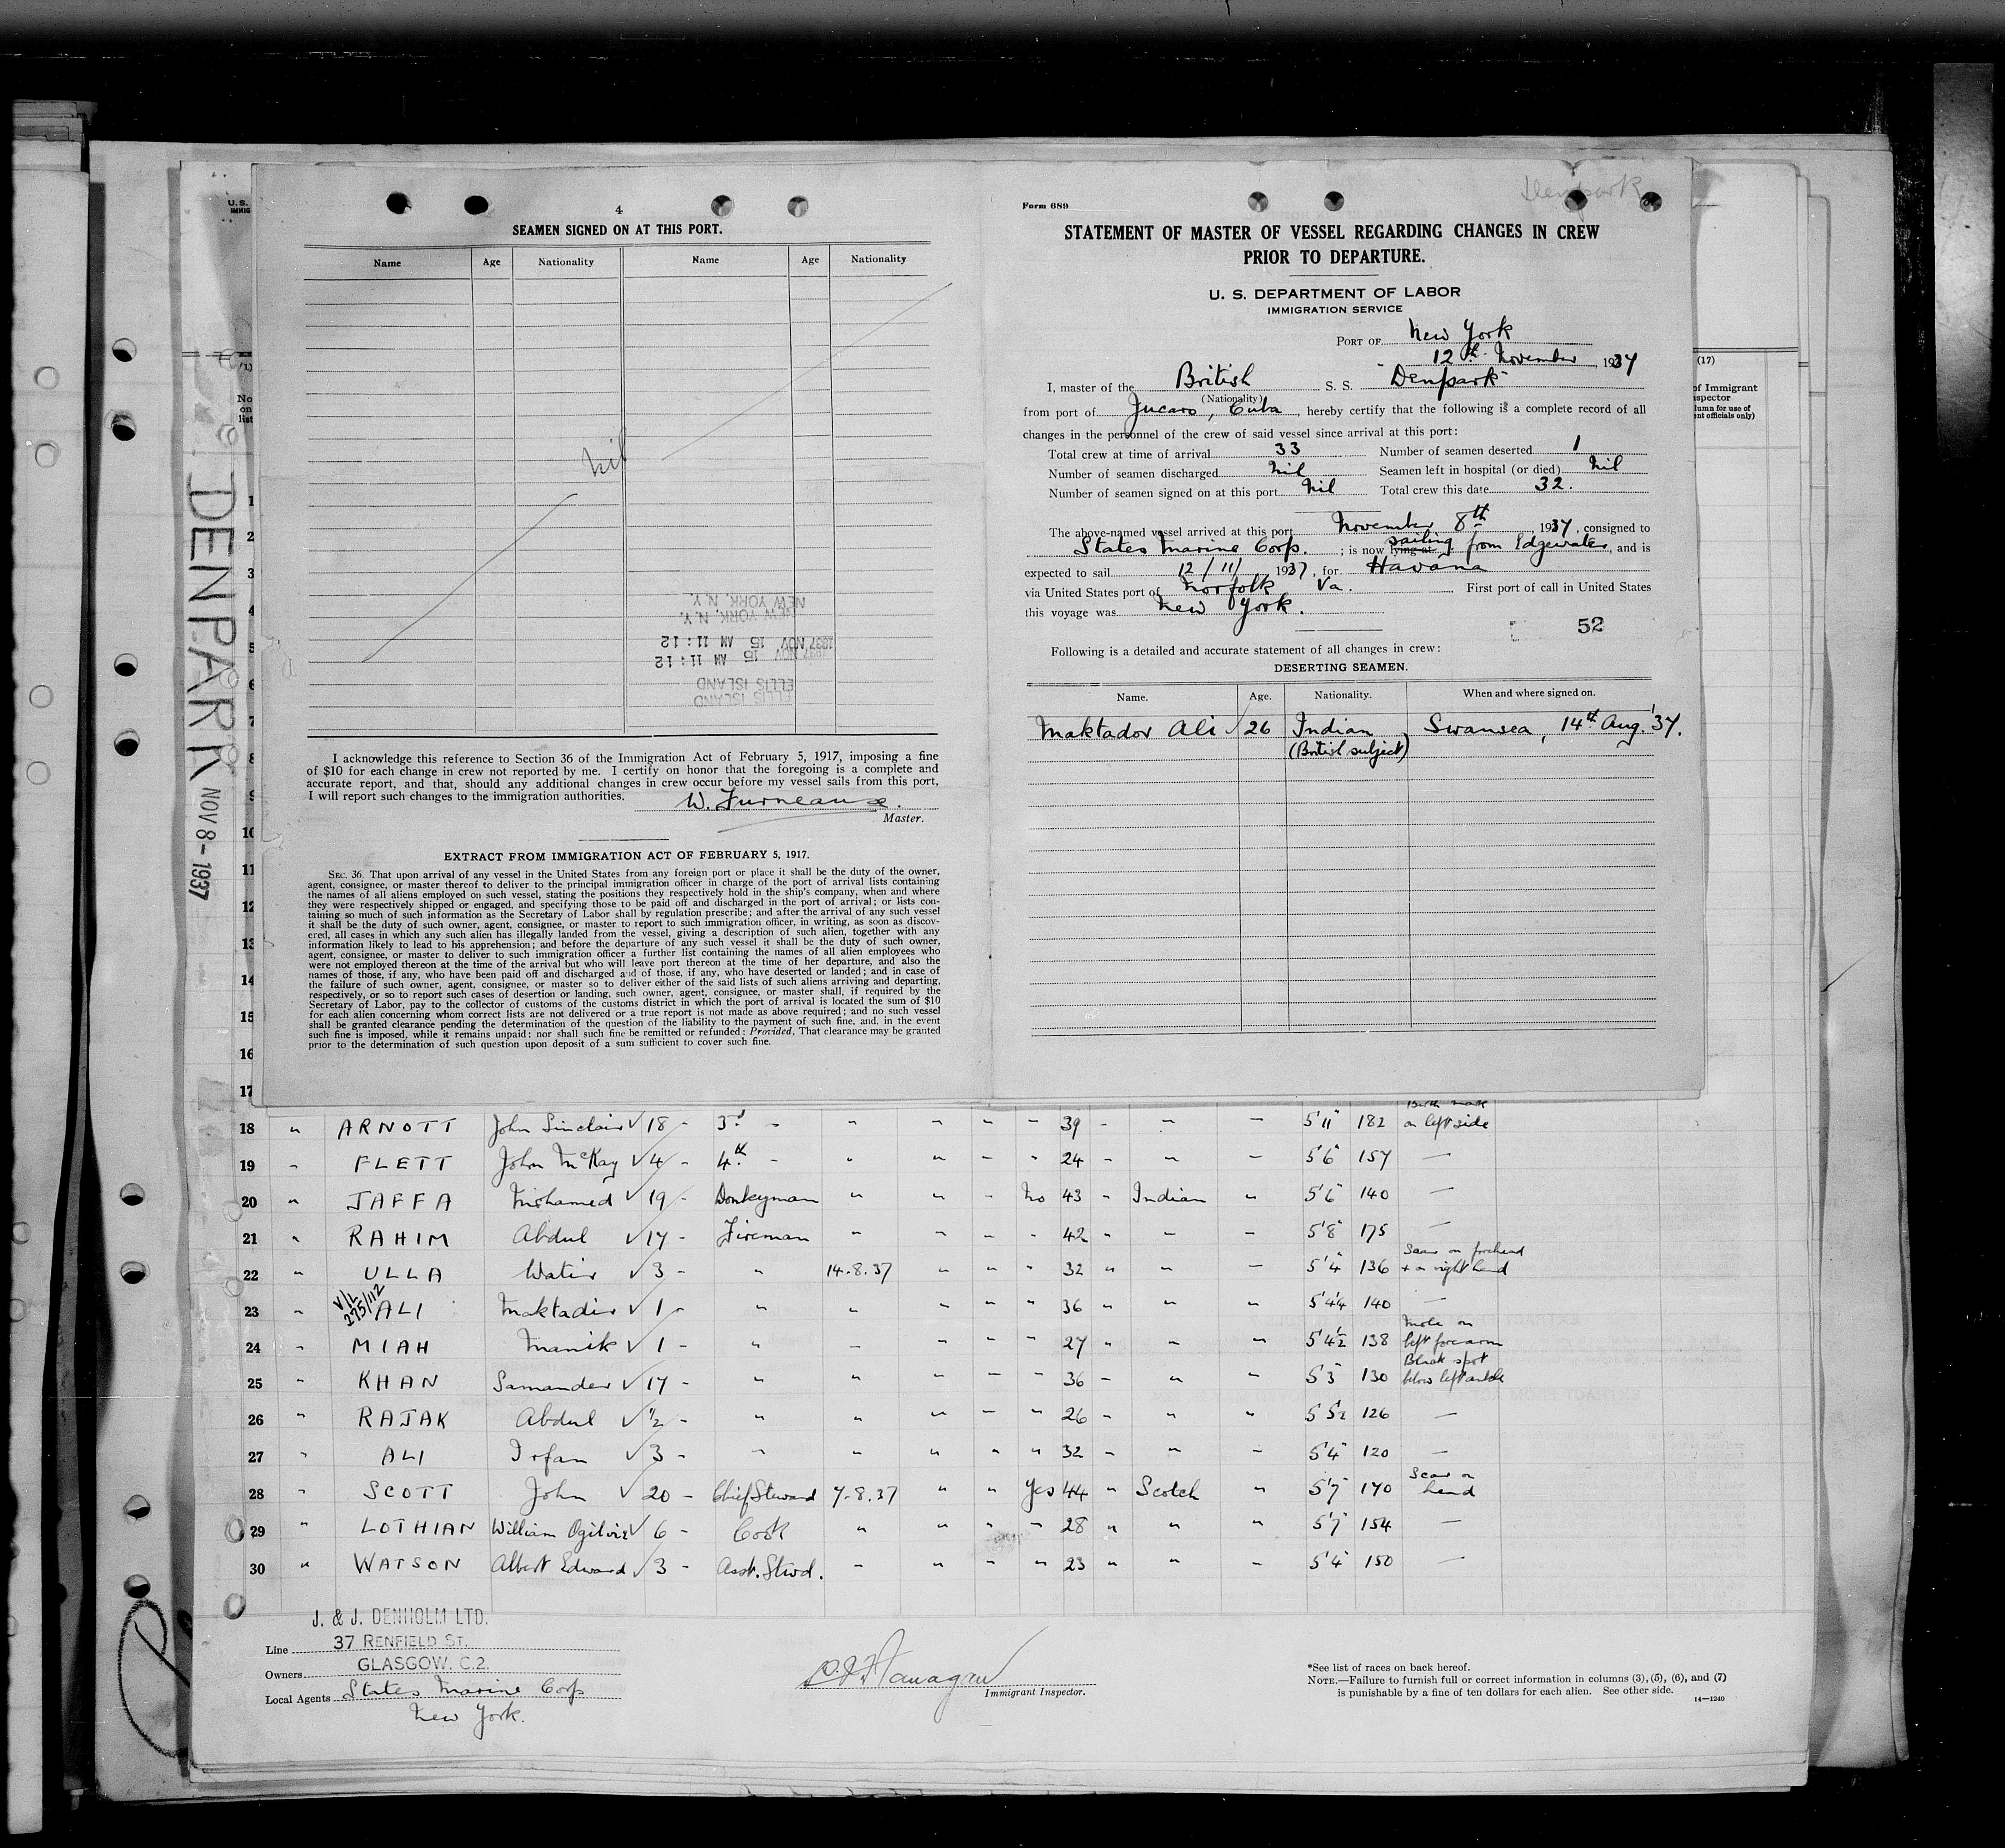 U.S.
IMMIG
DENPARK NOV 8-1937
4
SEAMEN SIGNED ON AT THIS PORT.
Name Age Nationality Name Age Nationality
nil
NEW YORK, N.Y.
NEW YORK, N.Y.
1937 NOV 15 AM 11:12
1937 NOV 15 AM 11:12
ELLIS ISLAND
ELLIS ISLAND
I acknowledge this reference to Section 36 of the Immigration Act of February 5, 1917, imposing a fine
of $10 for each change in crew not reported by me. I certify on honor that the foregoing is a complete and
accurate report, and that, should any additional changes in crew occur before my vessel sails from this port,
I will report such changes to the immigration authorities.
W. Furneaux.
Master.
EXTRACT FROM IMMIGRATION ACT OF FEBRUARY 5, 1917.
SEC. 36. That upon arrival of any vessel in the United States from any foreign port or place it shall be the duty of the owner,
agent, consignee, or master thereof to deliver to the principal immigration officer in charge of the port of arrival lists containing
the names of all aliens employed on such vessel, stating the positions they respectively hold in the ship's company, when and where
they were respectively shipped or engaged, and specifying those to be paid off and discharged in the port of arrival; or lists con-
taining so much of such information as the Secretary of Labor shall by regulation prescribe; and after the arrival of any such vessel
it shall be the duty of such owner, agent, consignee, or master to report to such immigration officer, in writing, as soon as discov-
ered, all cases in which any such alien has illegally landed from the vessel, giving a description of such alien, together with any
information likely to lead to his apprehension; and before the departure of any such vessel it shall be the duty of such owner,
agent, consignee, or master to deliver to such immigration officer a further list containing the names of all alien employees who
were not employed thereon at the time of the arrival but who will leave port thereon at the time of her departure, and also the
names of those, if any, who have been paid off and discharged and of those, if any, who have deserted or landed; and in case of
the failure of such owner, agent, consignee, or master so to deliver either of the said lists of such aliens arriving and departing,
respectively, or so to report such cases of desertion or landing, such owner, agent, consignee, or master shall, if required by the
Secretary of Labor, pay to the collector of customs of the customs district in which the port of arrival is located the sum of $10
for each alien concerning whom correct lists are not delivered or a true report is not made as above required; and no such vessel
shall be granted clearance pending the determination of the question of the liability to the payment of such fine, and, in the event
such fine is imposed, while it remains unpaid; nor shall such fine be remitted or refunded: Provided, That clearance may be granted
prior to the determination of such question upon deposit of a sum sufficient to cover such fine.
Denpark
Form 689
STATEMENT OF MASTER OF VESSEL REGARDING CHANGES IN CREW
PRIOR TO DEPARTURE.
U. S. DEPARTMENT OF LABOR
IMMIGRATION SERVICE
PORT OF New York
12th November, 1937
I, master of the British S. S. "Denpark"
(Nationality)
from port of Jucaro, Cuba, hereby certify that the following is a complete record of all
changes in the personnel of the crew of said vessel since arrival at this port:
Total crew at time of arrival 33 Number of seamen deserted 1
Number of seamen discharged Nil Seamen left in hospital (or died) Nil
Number of seamen signed on at this port Nil Total crew this date 32.
The above-named vessel arrived at this port November 8th, 1937, consigned to
States Marine Corp.; is now lying at sailing from Edgewater, and is
expected to sail 12/11/ 1937, for Havana
via United States port of Norfolk Va. First port of call in United States
this voyage was New York.
52
Following is a detailed and accurate statement of all changes in crew:
DESERTING SEAMEN.
Name. Age. Nationality. When and where signed on.
Maktador Ali √ 26 Indian (British subject) Swansea, 14th Aug. '37.
(17)
of Immigrant
spector
lumn for use of
nt officials only)
No
on
list
1
2
3
4
5
6
7
8
9
10
11
12
13
14
15
16
17
18 " ARNOTT John Sinclair √ 18 - 3rd - " " " " 39 - " - 5'11" 182 Birth mark on left side
19 - FLETT John McKay √ 4 - 4th - " " - " 24 - " - 5'6" 157 —
20 " JAFFA Mohamed √ 19 - Donkeyman " " - No 43 - Indian " 5'6" 140 —
21 " RAHIM Abdul √ 17 - Fireman " " - - 42 " - - 5'8" 175 —
22 " ULLA Watir √ 3 - " 14.8.37 " " " 32 " " - 5'4" 136 Scar on forehead + on right hand
V/L 275/112
23 " ALI Maktadir √ 1 - " " " " " 36 " " " 5'4¼ 140 —
24 - MIAH Manik √ 1 - " - " " " 27 " " " 5'4½ 138 Mole on left forearm
25 " KHAN Samander √ 17 - " " " - " 36 - " " 5'3" 130 Black spot below left ankle
26 " RAJAK Abdul √ ½ - " " " - " 26 - " " 5'5½ 126 —
27 " ALI Irfan √ 3 - " " " " " 32 - " - 5'4" 120 —
28 " SCOTT John √ 20 - Chief Steward 7.8.37 " " Yes 44 " Scotch " 5'7" 170 Scar on hand
29 " LOTHIAN William Ogilvie √ 6 - Cook " " " " 28 " " " 5'7" 154 —
30 " WATSON Albert Edward √ 3 - Asst. Stwd. - " " " 23 " " - 5'4" 150 —
J. & J. DENHOLM LTD.
Line 37 RENFIELD ST.
Owners GLASGOW. C.2.
Local Agents States Marine Corp
New York.
Immigrant Inspector.
*See list of races on back hereof.
NOTE.—Failure to furnish full or correct information in columns (3), (5), (6), and (7)
is punishable by a fine of ten dollars for each alien. See other side.
14—1240